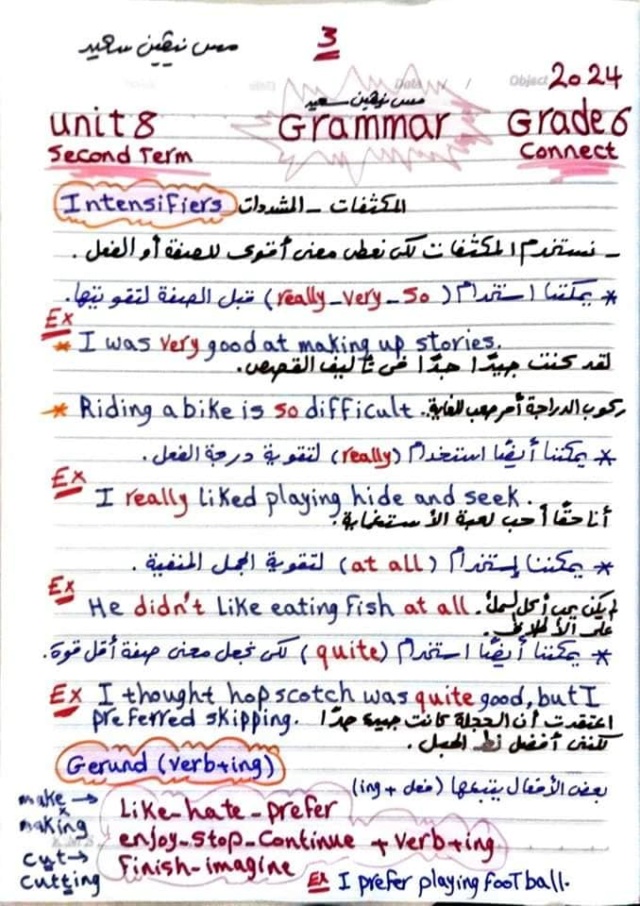 3
مس نيڤين سعيد
Date / /
Object 2024
مس نيڤين سعيد
Unit 8 Grammar Grade 6
Second Term Connect
Intensifiers المكثفات - المشددات
- نستخدم المكثفات لكى نعطى معنى أقوى للصفة أو الفعل .
* يمكننا استخدام (really - very - so) قبل الصفة لتقويتها.
Ex
* I was very good at making up stories.
لقد كنت جيدًا جدًا فى تأليف القصص.
* Riding a bike is so difficult. ركوب الدراجة أمر صعب للغاية.
* يمكننا أيضًا استخدام (really) لتقوية درجة الفعل .
Ex
I really liked playing hide and seek.
أنا حقًا أحب لعبة الأستغماية.
* يمكننا إستخدام (at all) لتقوية الجمل المنفية .
Ex
He didn't like eating fish at all. لم يكن يحب أكل السمك
على الأطلاق.
* يمكننا أيضًا استخدام (quite) لكى نجعل معنى صفة أقل قوة.
Ex I thought hopscotch was quite good, but I
preferred skipping. اعتقدت أن الحجلة كانت جيدة جدًا
لكننى أفضل نط الحبل .
Gerund (verb+ing)
بعض الأفعال يتبعها (فعل + ing)
make →
making
cut →
cutting
Like - hate - prefer
enjoy - stop - Continue + verb+ing
Finish - imagine
Ex I prefer playing football.